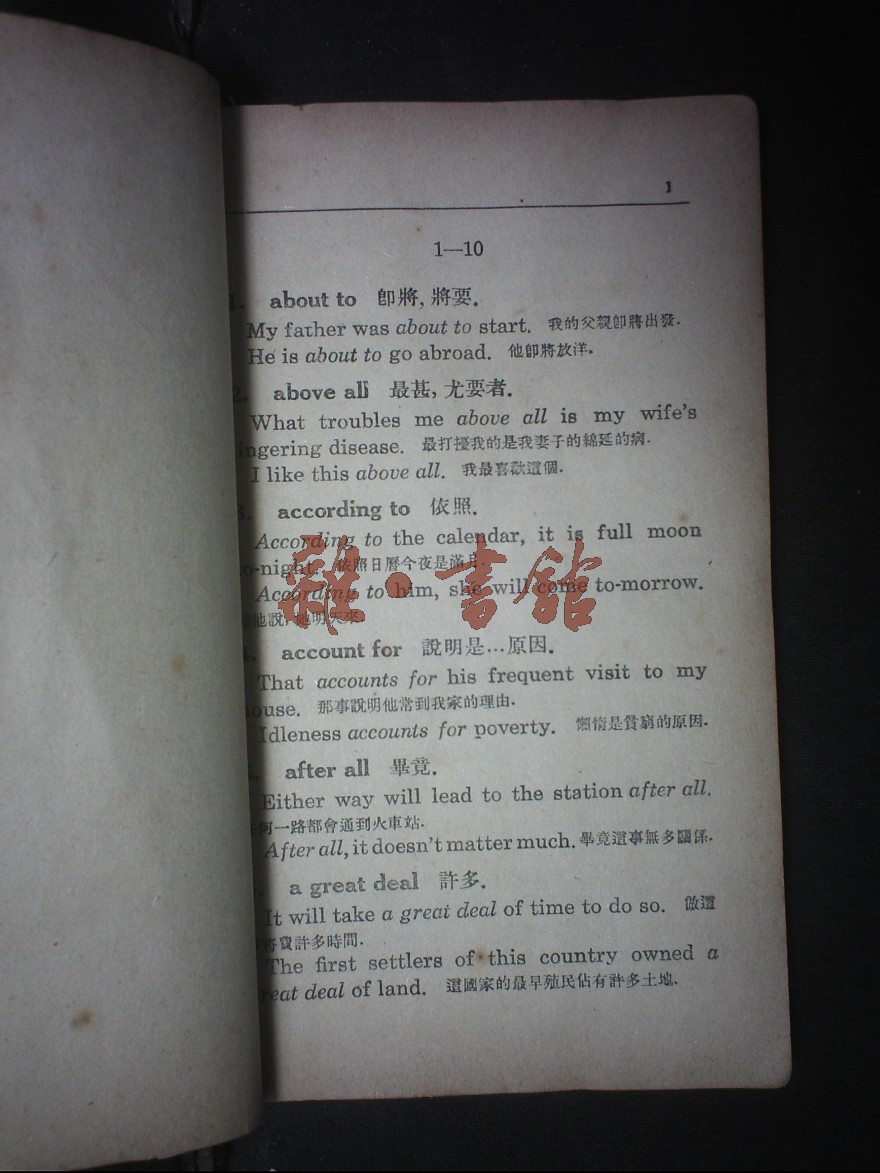 1
1—10
1. about to 即將, 將要.
My father was about to start. 我的父親即將出發.
He is about to go abroad. 他即將放洋.
2. above all 最甚, 尤要者.
What troubles me above all is my wife's
ingering disease. 最打擾我的是我妻子的綿延的病.
I like this above all. 我最喜歡這個.
3. according to 依照.
According to the calendar, it is full moon
to-night. 依照日曆今夜是滿月.
According to him, she will come to-morrow.
他說, 她明天來.
account for 說明是…原因.
That accounts for his frequent visit to my
ouse. 那事說明他常到我家的理由.
Idleness accounts for poverty. 懶惰是貧窮的原因.
after all 畢竟.
Either way will lead to the station after all.
何一路都會通到火車站.
After all, it doesn't matter much. 畢竟這事無多關係.
a great deal 許多.
It will take a great deal of time to do so. 做這
將費許多時間.
The first settlers of this country owned a
reat deal of land. 這國家的最早殖民佔有許多土地.
雜·書館